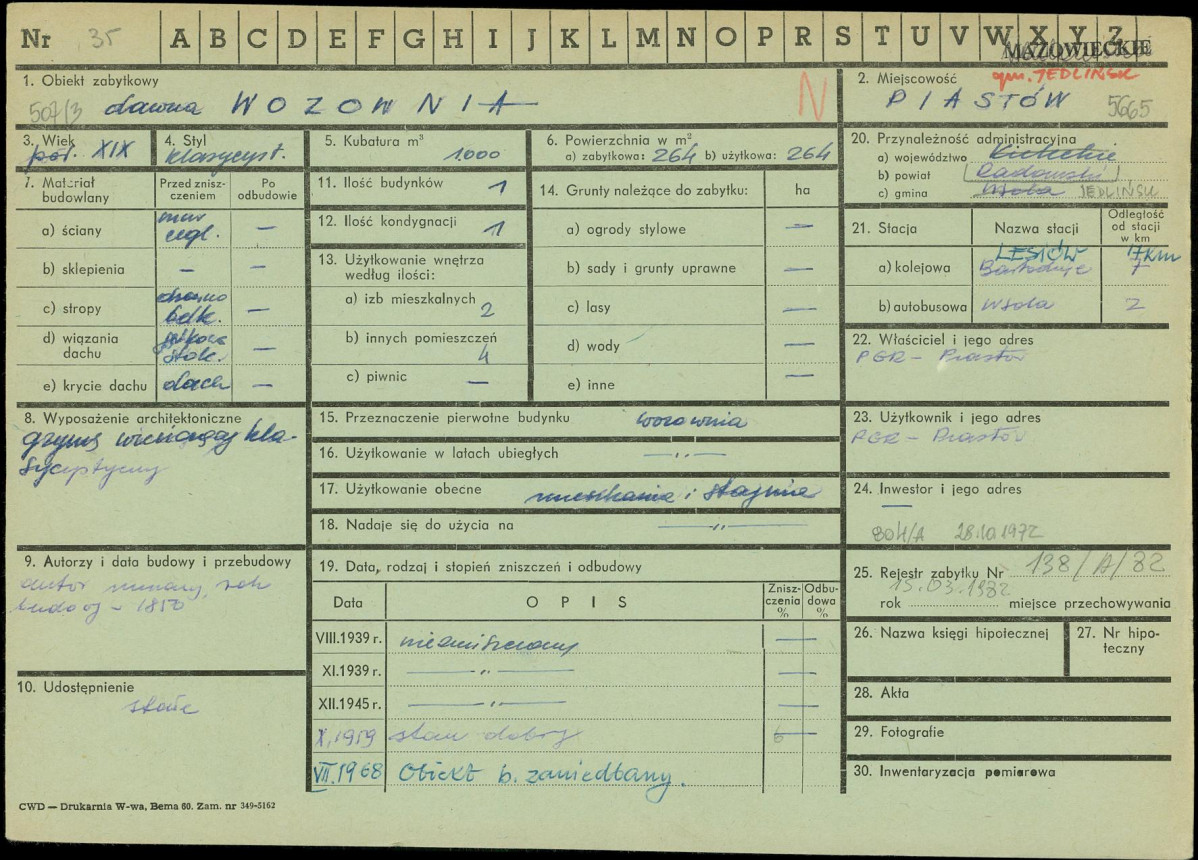 Nr 35 A B C D E F G H I J K L M N O P R S T U V W X Y Z
MAZOWIECKIE
1. Obiekt zabytkowy
507/3 dawna WOZOWNIA N
2. Miejscowość gm. JEDLIŃSK
PIASTÓW 5665
3. Wiek
poł. XIX
4. Styl
klasycyst.
5. Kubatura m³
1.000
6. Powierzchnia w m²
a) zabytkowa: 264 b) użytkowa: 264
20. Przynależność administracyjna
a) województwo Kieleckie
b) powiat Radomski
c) gmina Wsola JEDLIŃSK
7. Materiał budowlany
Przed zniszczeniem
Po odbudowie
a) ściany mur cegl. —
b) sklepienia — —
c) stropy drewno belk. —
d) wiązania dachu stolc. —
e) krycie dachu dach —
11. Ilość budynków 1
12. Ilość kondygnacji 1
13. Użytkowanie wnętrza według ilości:
a) izb mieszkalnych 2
b) innych pomieszczeń 4
c) piwnic —
14. Grunty należące do zabytku: ha
a) ogrody stylowe —
b) sady i grunty uprawne —
c) lasy —
d) wody —
e) inne —
21. Stacja Nazwa stacji Odległość od stacji w km
LESIÓW 17km
a) kolejowa Bartodzieje 7
b) autobusowa Wsola 2
22. Właściciel i jego adres
PGR - Piastów
8. Wyposażenie architektoniczne
gzyms wieńczący kla-
sycystyczny
15. Przeznaczenie pierwotne budynku wozownia
16. Użytkowanie w latach ubiegłych — „ —
17. Użytkowanie obecne mieszkania i stajnia
18. Nadaje się do użycia na — „ —
23. Użytkownik i jego adres
PGR - Piastów
24. Inwestor i jego adres
—
804/A 28.10.1972
9. Autorzy i data budowy i przebudowy
autor nieznany, rok
budowy - 1850
19. Data, rodzaj i stopień zniszczeń i odbudowy
Data OPIS Zniszczenia % Odbudowa %
VIII.1939 r. niezniszczony —
XI.1939 r. — „ — —
XII.1945 r. — „ — —
X.1959 stan dobry 6 —
VII.1968 Obiekt b. zaniedbany.
25. Rejestr zabytku Nr 138/A/82
15.03.1982
rok miejsce przechowywania
26. Nazwa księgi hipotecznej
27. Nr hipoteczny
10. Udostępnienie
stałe
28. Akta
29. Fotografie
30. Inwentaryzacja pomiarowa
CWD — Drukarnia W-wa, Bema 60. Zam. nr 349-5162